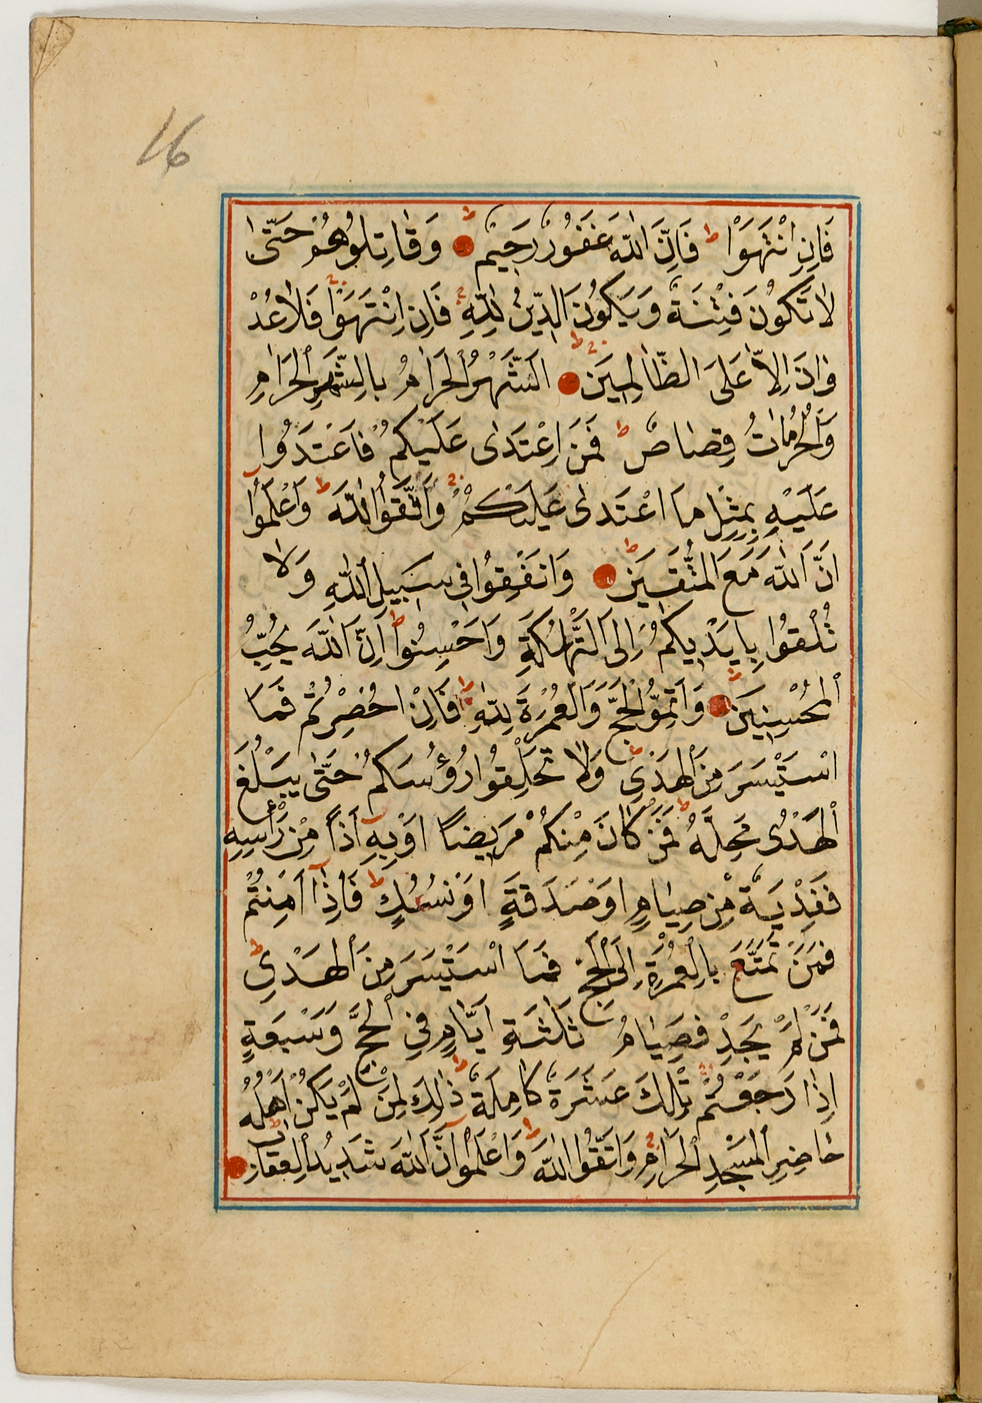 16
فَاِنِ انْتَهَوْا فَاِنَّ اللّٰهَ غَفُورٌ رَحِيمٌ وَقَاتِلُوهُمْ حَتّٰى
لَا تَكُونَ فِتْنَةٌ وَيَكُونَ الدِّينُ لِلّٰهِ فَاِنِ انْتَهَوْا فَلَا عُدْ
وَانَ اِلَّا عَلَى الظَّالِمِينَ اَلشَّهْرُ الْحَرَامُ بِالشَّهْرِ الْحَرَامِ
وَالْحُرُمَاتُ قِصَاصٌ فَمَنِ اعْتَدٰى عَلَيْكُمْ فَاعْتَدُوا
عَلَيْهِ بِمِثْلِ مَا اعْتَدٰى عَلَيْكُمْ وَاتَّقُوا اللّٰهَ وَاعْلَمُوا
اَنَّ اللّٰهَ مَعَ الْمُتَّقِينَ وَاَنْفِقُوا فِي سَبِيلِ اللّٰهِ وَلَا
تُلْقُوا بِاَيْدِيكُمْ اِلَى التَّهْلُكَةِ وَاَحْسِنُوا اِنَّ اللّٰهَ يُحِبُّ
الْمُحْسِنِينَ وَاَتِمُّوا الْحَجَّ وَالْعُمْرَةَ لِلّٰهِ فَاِنْ اُحْصِرْتُمْ فَمَا
اسْتَيْسَرَ مِنَ الْهَدْيِ وَلَا تَحْلِقُوا رُؤُسَكُمْ حَتّٰى يَبْلُغَ
الْهَدْىُ مَحِلَّهُ فَمَنْ كَانَ مِنْكُمْ مَرِيضًا اَوْ بِهِ اَذًا مِنْ رَأْسِهِ
فَفِدْيَةٌ مِنْ صِيَامٍ اَوْ صَدَقَةٍ اَوْ نُسُكٍ فَاِذَا اَمِنْتُمْ
فَمَنْ تَمَتَّعَ بِالْعُمْرَةِ اِلَى الْحَجِّ فَمَا اسْتَيْسَرَ مِنَ الْهَدْيِ
فَمَنْ لَمْ يَجِدْ فَصِيَامُ ثَلٰثَةِ اَيَّامٍ فِي الْحَجِّ وَسَبْعَةٍ
اِذَا رَجَعْتُمْ تِلْكَ عَشَرَةٌ كَامِلَةٌ ذٰلِكَ لِمَنْ لَمْ يَكُنْ اَهْلُهُ
حَاضِرِى الْمَسْجِدِ الْحَرَامِ وَاتَّقُوا اللّٰهَ وَاعْلَمُوا اَنَّ اللّٰهَ شَدِيدُ الْعِقَابِ